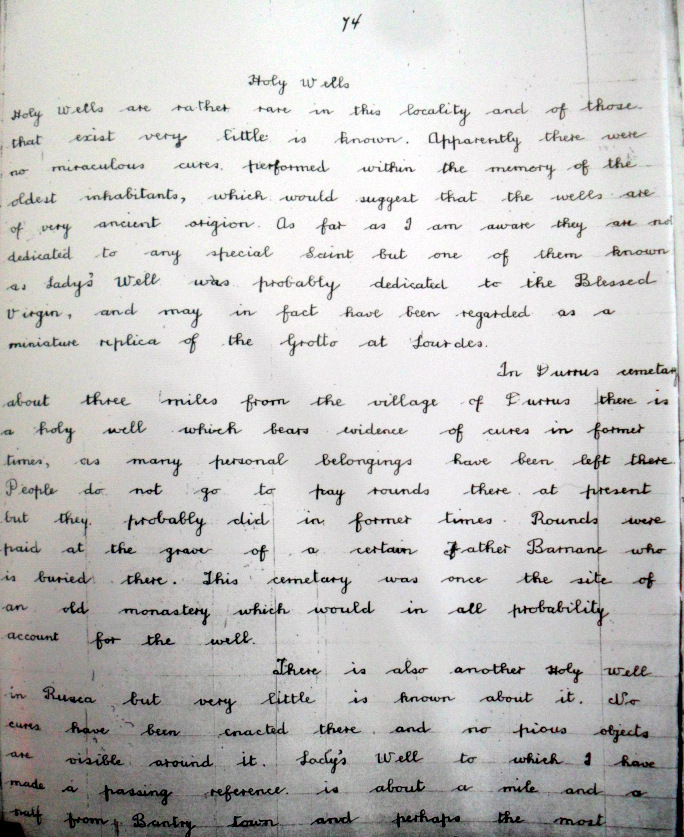 74
Holy Wells
Holy Wells are rather rare in this locality and of those
that exist very little is known. Apparently there were
no miraculous cures performed within the memory of the
oldest inhabitants, which would suggest that the wells are
of very ancient origion. As far as I am aware they are not
dedicated to any special Saint but one of them known
as Lady's Well was probably dedicated to the Blessed
Virgin, and may in fact have been regarded as a
miniature replica of the Grotto at Lourdes.
In Durrus cemetary
about three miles from the village of Durrus there is
a holy well which bears evidence of cures in former
times, as many personal belongings have been left there.
People do not go to pay rounds there at present
but they probably did in former times. Rounds were
paid at the grave of a certain Father Barnane who
is buried there. This cemetary was once the site of
an old monastery which would in all probability
account for the well.
There is also another Holy Well
in Rusca but very little is known about it. No
cures have been enacted there and no pious objects
are visible around it. Lady's Well to which I have
made a passing reference is about a mile and a
half from Bantry town and perhaps the most